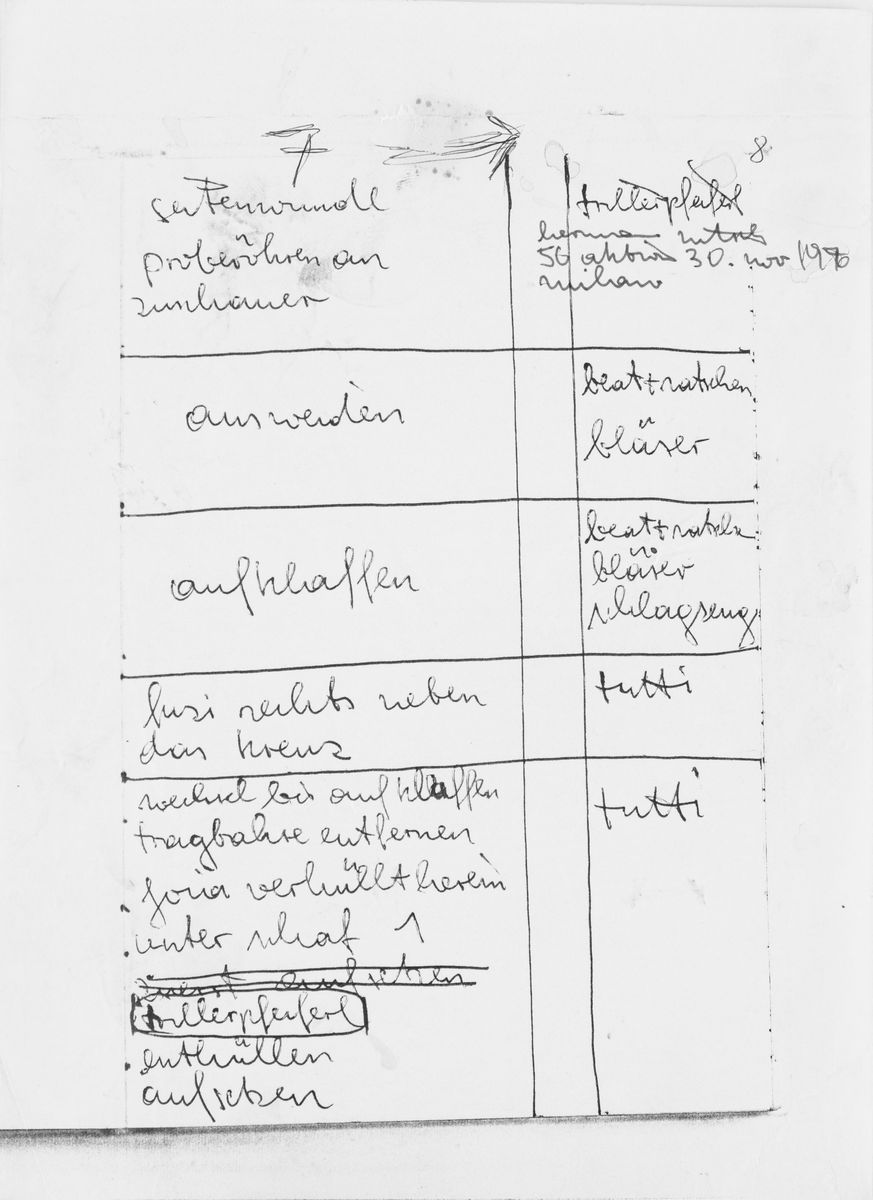 7
8
seitenwunde
proberöhren an
zuschauer
trillerpfeiferl
hermann nitsch
50 aktion 30. nov 1976
milano
ausweiden
beat + ratschen
bläser
aufklaffen
beat + ratschen
bläser
schlagzeug
rechts neben
das kreuz
tutti
wechsel bis aufklaffen
tragbahre entfernen
verhüllt herein
unter schaf 1
aufsetzen
trillerpfeiferl
enthüllen
aufsetzen
tutti